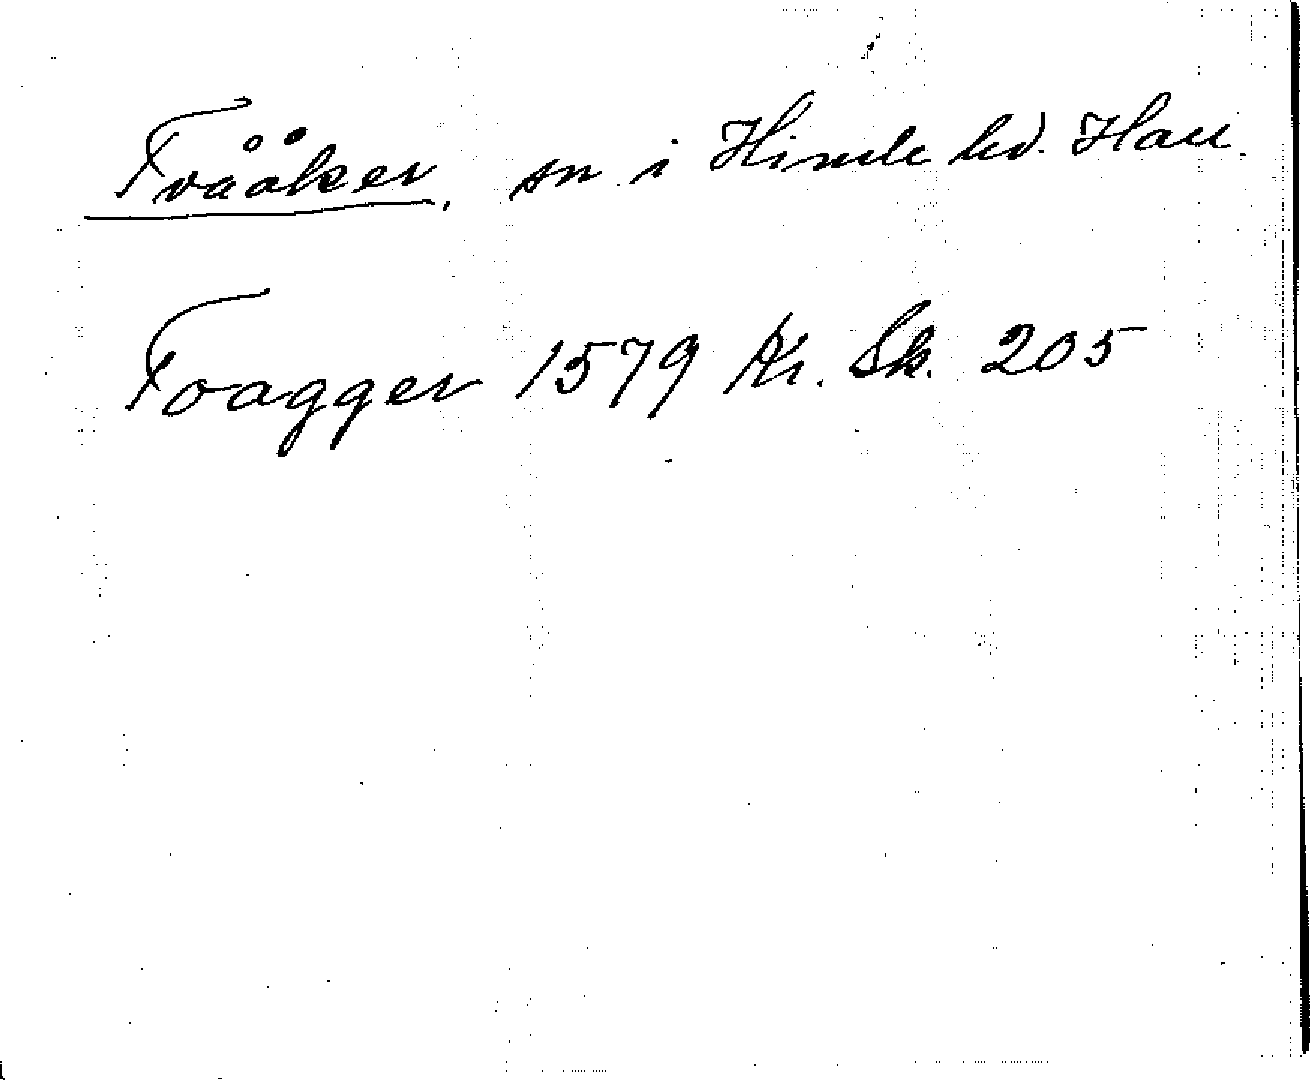 Tvååker, sn i Himle hd. Hall.
Toagger 1579 Kr. Sk. 205